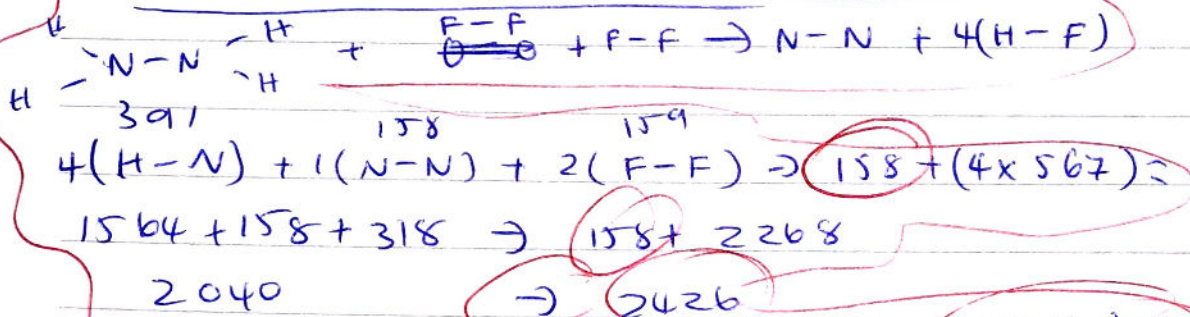 H H F-F
N-N + + F-F → N-N + 4(H-F)
H H
391 158 159
4(H-N) + 1(N-N) + 2(F-F) → 158 + (4x567) =
1564 + 158 + 318 → 158 + 2268
2040 → 2426